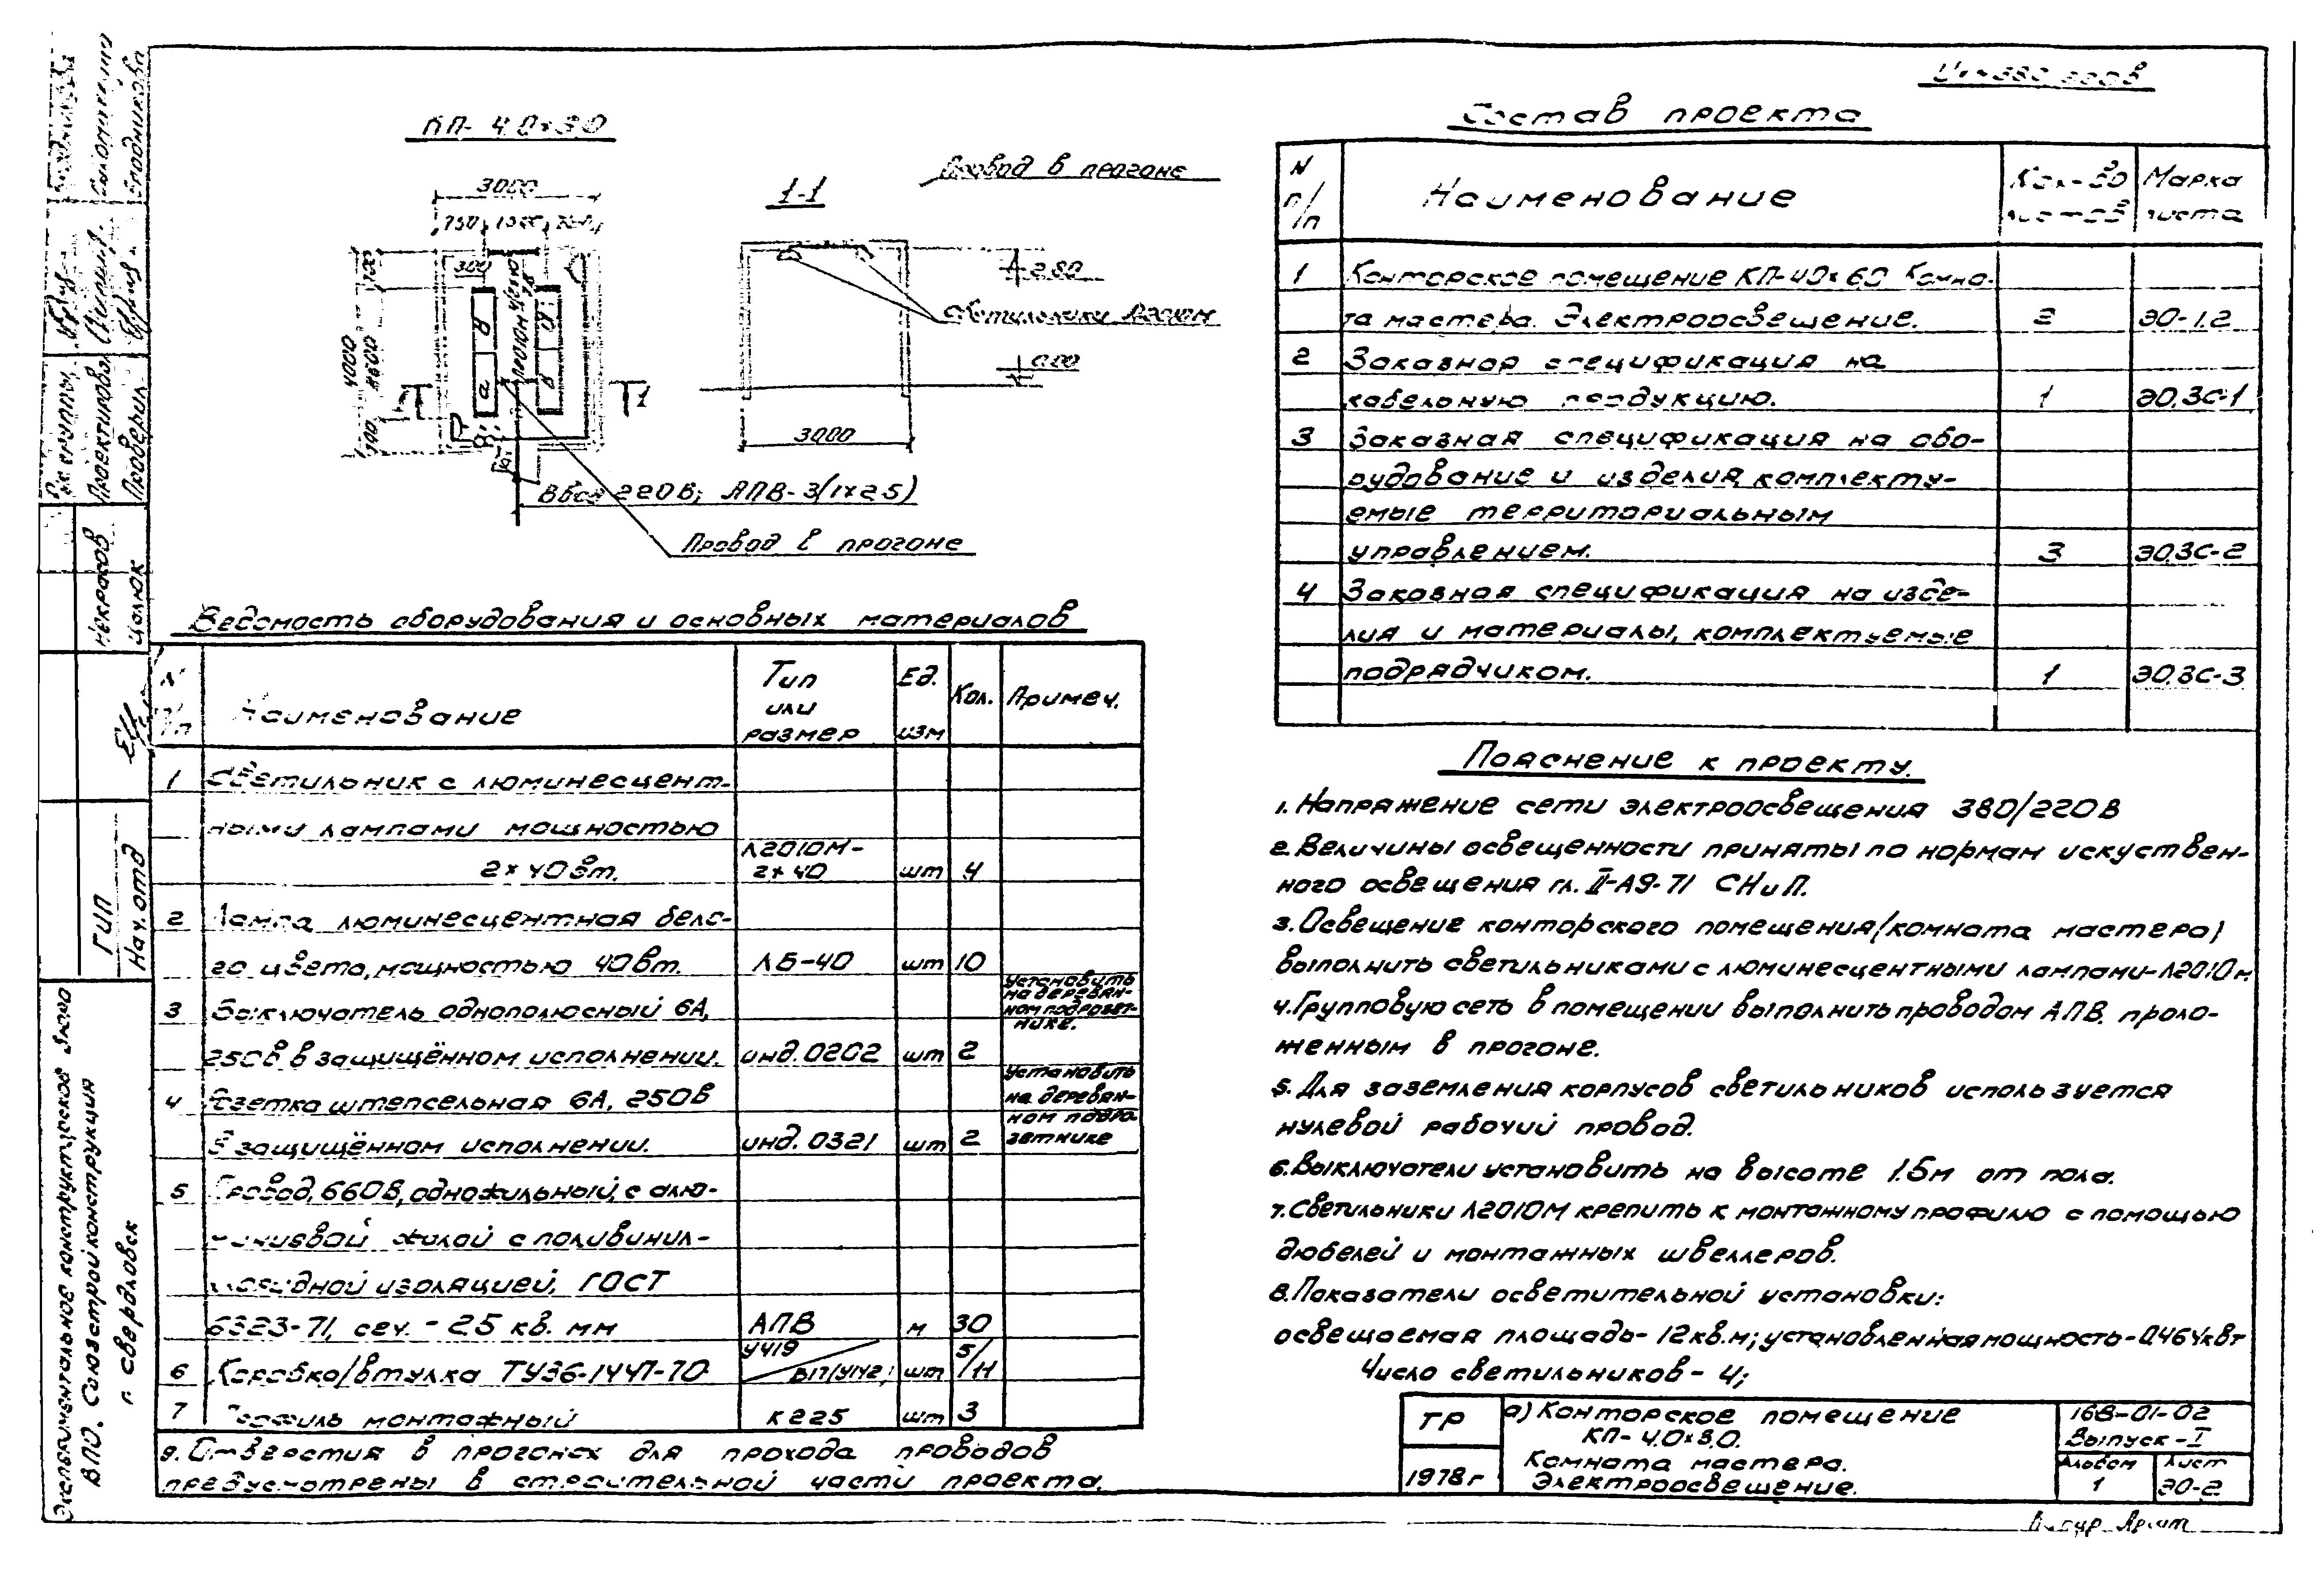 КП-4.0×3.0
3000
300
4000
3600
Провод в прогоне
1-1
2.80
Светильники Л2010М
0.00
3000
Ввод 220В; АПВ-3(1×2.5)
Провод в прогоне
Состав проекта
N п/п
Наименование
Кол-во листов
Марка листа
1 Конторское помещение КП-40×60 Комна-
та мастера. Электроосвещение. 2 ЭО-1.2
2 Заказная спецификация на
кабельную продукцию. 1 ЭО.ЗС-1
3 Заказная спецификация на обо-
рудование и изделия, комплекту-
емые территориальным
управлением. 3 ЭО.ЗС-2
4 Заказная спецификация на изде-
лия и материалы, комплектуемые
подрядчиком. 1 ЭО.ЗС-3
Ведомость оборудования и основных материалов
N п/п
Наименование
Тип или размер
Ед. изм
Кол.
Примеч.
1 Светильник с люминесцент-
ными лампами мощностью
2×40вт. Л2010М-2×40 шт 4
2 Лампа люминесцентная бело-
го цвета, мощностью 40вт. ЛБ-40 шт 10
3 Выключатель однополюсный 6А,
250в в защищённом исполнении. инд.0202 шт 2
Установить на деревян-
ном подрозет-
нике.
4 Розетка штепсельная 6А, 250в
в защищённом исполнении. инд.0321 шт 2
Установить
на деревян-
ном подро-
зетнике
5 Провод, 660В, одножильный, с алю-
миниевой жилой с поливинил-
хлоридной изоляцией, ГОСТ
6323-71, сеч. - 2.5 кв. мм АПВ м 30
6 Коробка/втулка ТУ36-1447-70. У419/ВП(У142) шт 5/11
7 Профиль монтажный К225 шт 3
9. Отверстия в прогонах для прохода проводов
предусмотрены в строительной части проекта.
Пояснение к проекту.
1. Напряжение сети электроосвещения 380/220В
2. Величины освещенности приняты по нормам искуствен-
ного освещения гл. II-А9-71 СНиП.
3. Освещение конторского помещения (комната мастера)
выполнить светильниками с люминесцентными лампами-Л2010м.
4. Групповую сеть в помещении выполнить проводом АПВ, проло-
женным в прогоне.
5. Для заземления корпусов светильников используется
нулевой рабочий провод.
6. Выключатели установить на высоте 1.5м от пола.
7. Светильники Л2010М крепить к монтажному профилю с помощью
дюбелей и монтажных швеллеров.
8. Показатели осветительной установки:
освещаемая площадь-12кв.м; установленная мощность-0.464квт
Число светильников- 4;
ТР
1978г
а) Конторское помещение
КП-4.0×3.0.
Комната мастера.
Электроосвещение.
168-01-02
Выпуск-I
Альбом 1
Лист ЭО-2
Рук. группы
Проектировал
Проверил
Бродникова
Некрасов
Цалюк
ГИП
Нач. отд
Экспериментальное конструкторское бюро
ВПО. Союзстройконструкция
г. Свердловск